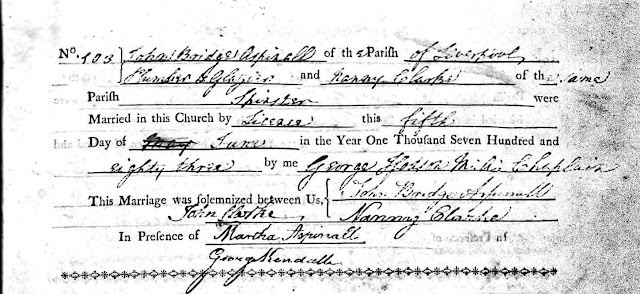 No. 103 } John Bridge Aspinall of the Parish of Liverpool
Plumber & Glazier and Nanny Clarke of the same
Parish Spinster were
Married in this Church by Licence this fifth
Day of May June in the Year One Thousand Seven Hundred and
eighty three by me George Hodson M.A. Chaplain
This Marriage was solemnized between Us, { John Bridge Aspinall
Nanny Clarke
In Presence of John Clarke
Martha Aspinall
George Kendall